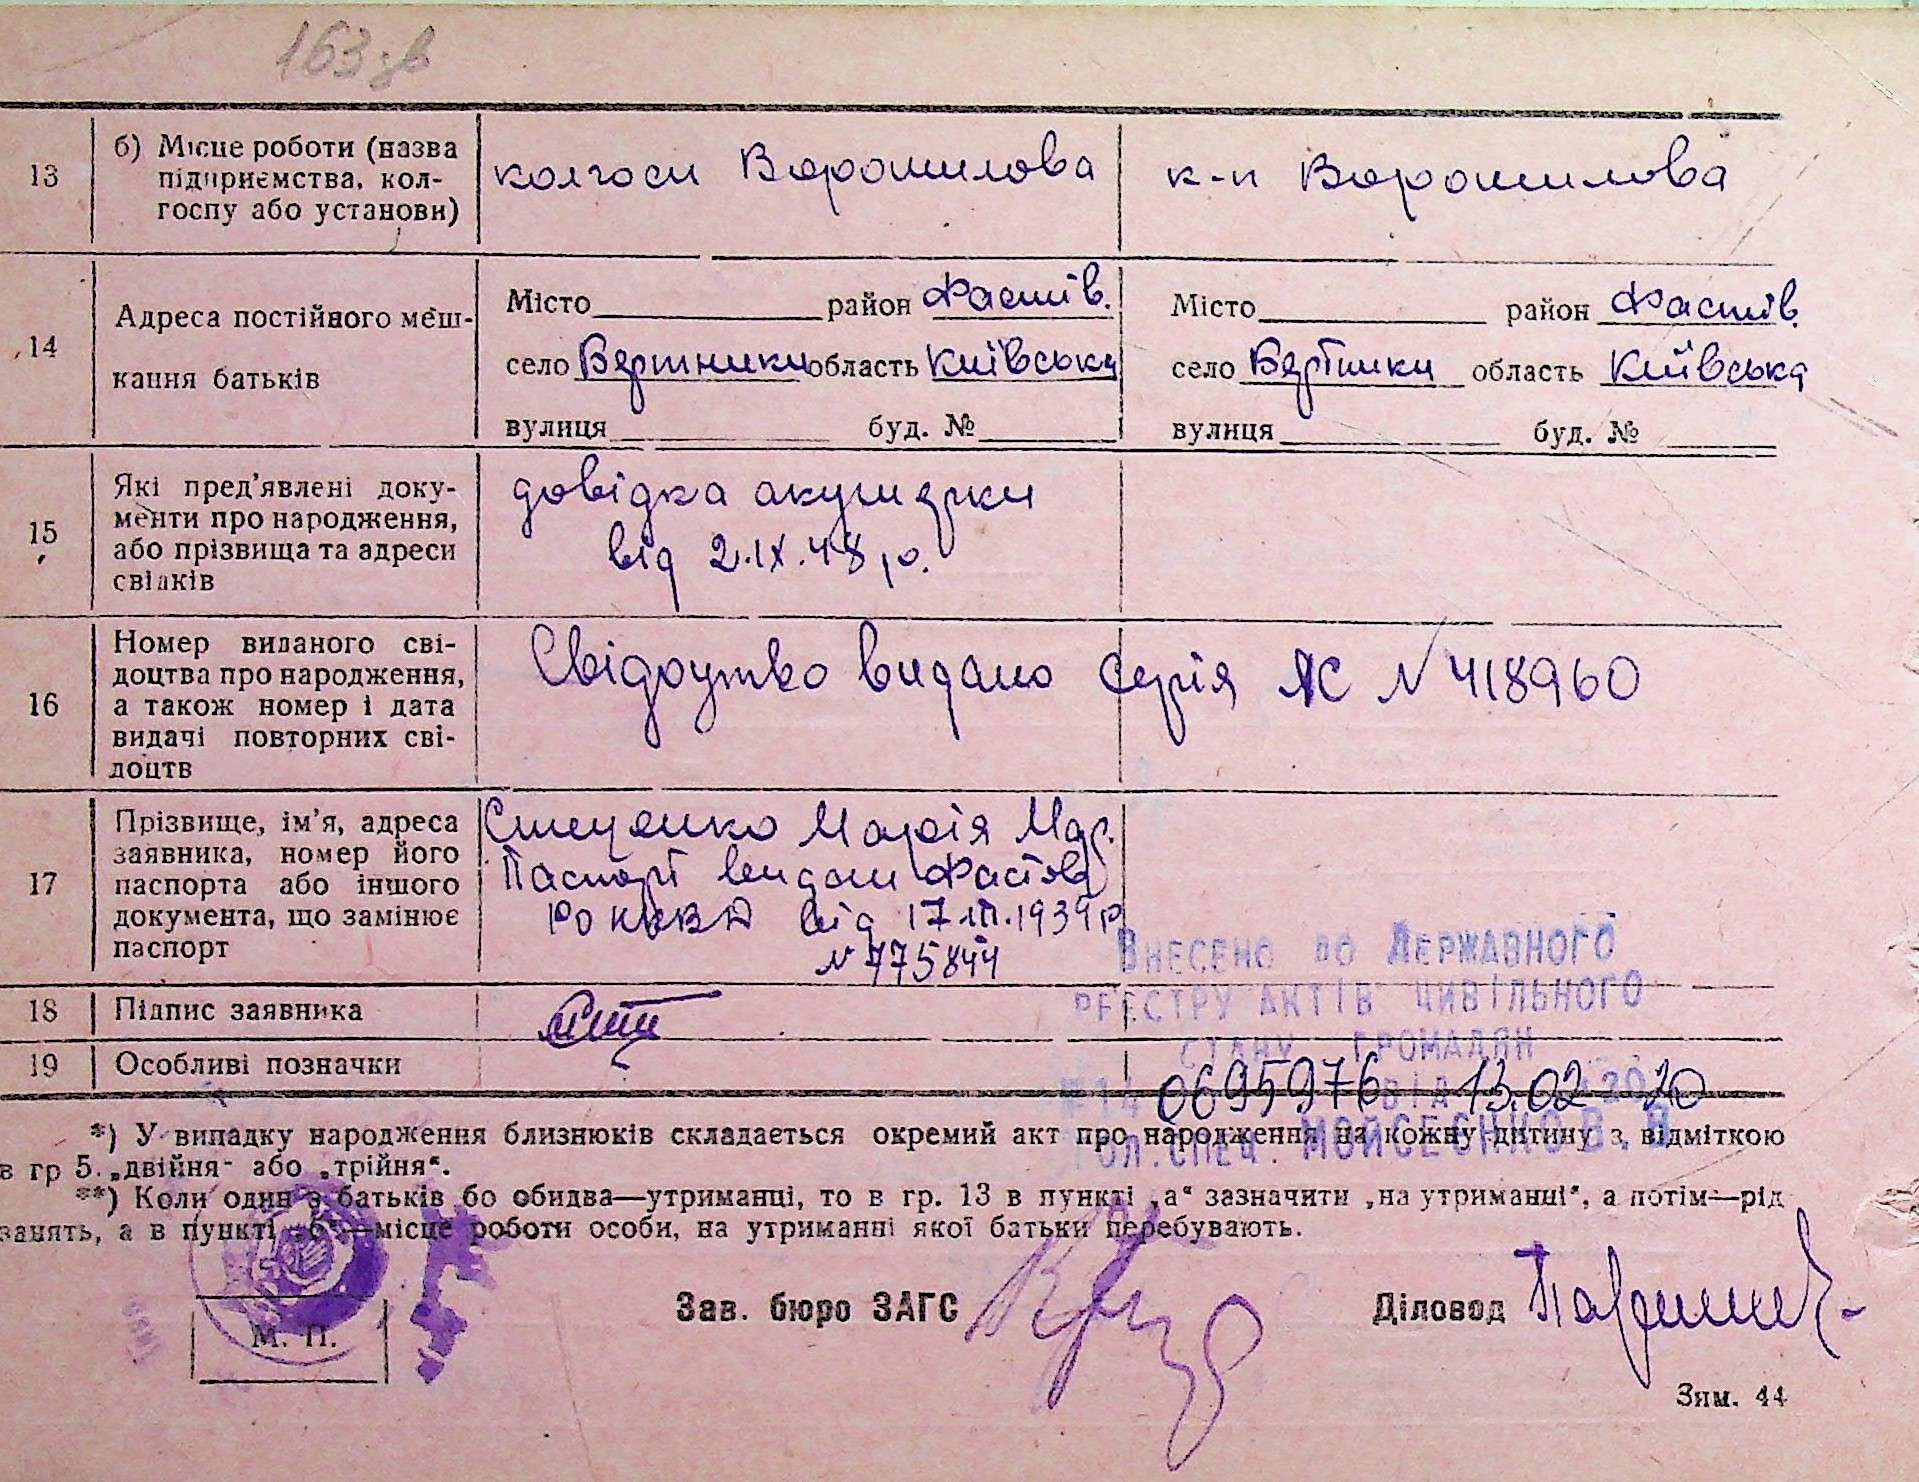 163 зв
13
б) Місце роботи (назва
підприємства, кол-
госпу або установи)
колгосп Ворошилова
к-п Ворошилова
14
Адреса постійного меш-
кання батьків
Місто район Фастів.
село Вертники область Київська
вулиця буд. №
Місто район Фастів.
село Вертники область Київська
вулиця буд. №
15
Які пред'явлені доку-
менти про народження,
або прізвища та адреси
свідків
довідка акушерки
від 2.IX.48 р.
16
Номер виданого сві-
доцтва про народження,
а також номер і дата
видачі повторних сві-
доцтв
Свідоцтво видано серія ЯС № 418960
17
Прізвище, ім'я, адреса
заявника, номер його
паспорта або іншого
документа, що замінює
паспорт
Стеценко Марія Мар.
Паспорт видан Фастов
РО НКВД від 17.III.1939 р
№ 775844
18
Підпис заявника
19
Особливі позначки
Внесено до Державного
реєстру актів цивільного
стану громадян
№14 0695976 від 13.02 2020
Гол. спец. Мойсеєнко В.В
*) У випадку народження близнюків складається окремий акт про народження на кожну дитину з відміткою
в гр 5. „двійня" або „трійня".
**) Коли один з батьків бо обидва—утриманці, то в гр. 13 в пункті „а" зазначити „на утриманні", а потім—рід
занять, а в пункті „б"—місце роботи особи, на утриманні якої батьки перебувають.
М. П.
Зав. бюро ЗАГС
Діловод
Зям. 44